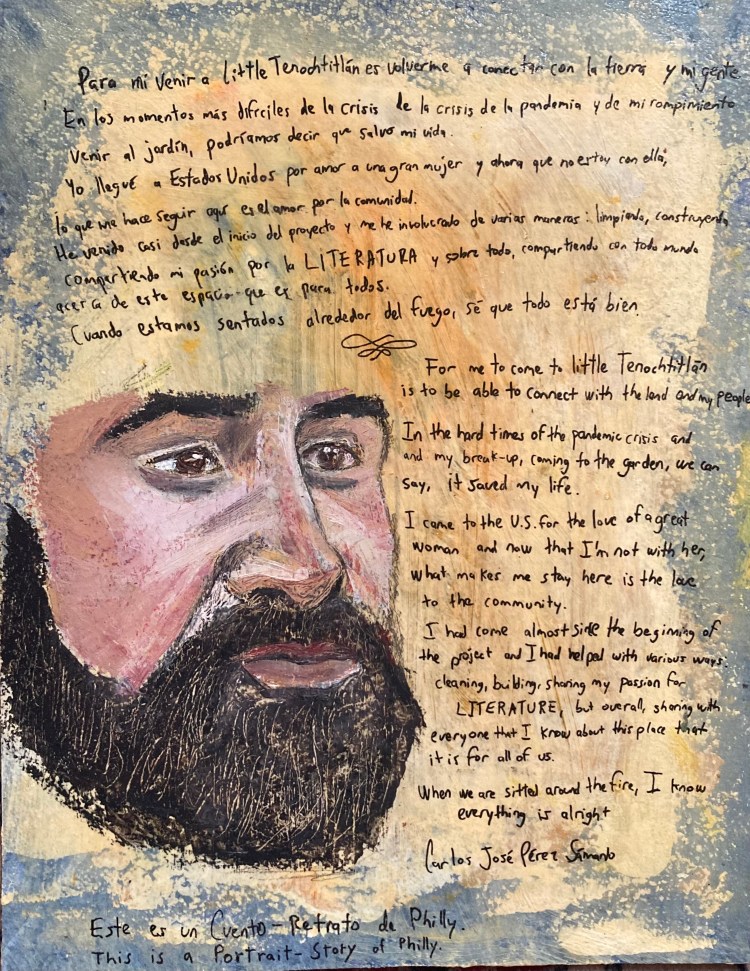 Para mi venir a little Tenochtitlán es volverme a conectar con la tierra y mi gente.
En los momentos más difíciles de la crisis de la crisis de la pandemia y de mi rompimiento
venir al jardín, podríamos decir que salvo mi vida.
Yo llegué a Estados Unidos por amor a una gran mujer y ahora que no estoy con ella,
lo que me hace seguir aquí es el amor por la comunidad.
He venido casi desde el inicio del proyecto y me he involucrado de varias maneras: limpiando, construyendo,
compartiendo mi pasión por la LITERATURA y sobre todo, compartiendo con todo mundo
acerca de este espacio que es para todos.
Cuando estamos sentados alrededor del fuego, sé que todo está bien.
For me to come to little Tenochtitlán
is to be able to connect with the land and my people
In the hard times of the pandemic crisis and
and my break-up, coming to the garden, we can
say, it saved my life.
I came to the U.S. for the love of a great
woman and now that I'm not with her,
what makes me stay here is the love
to the community.
I had come almost side the beginning of
the project and I had helped with various ways:
cleaning, building, sharing my passion for
LITERATURE, but overall, sharing with
everyone that I know about this place that
it is for all of us.
When we are sitted around the fire, I know
everything is alright
Carlos José Pérez
Este es un Cuento-Retrato de Philly.
This is a Portrait-Story of Philly.